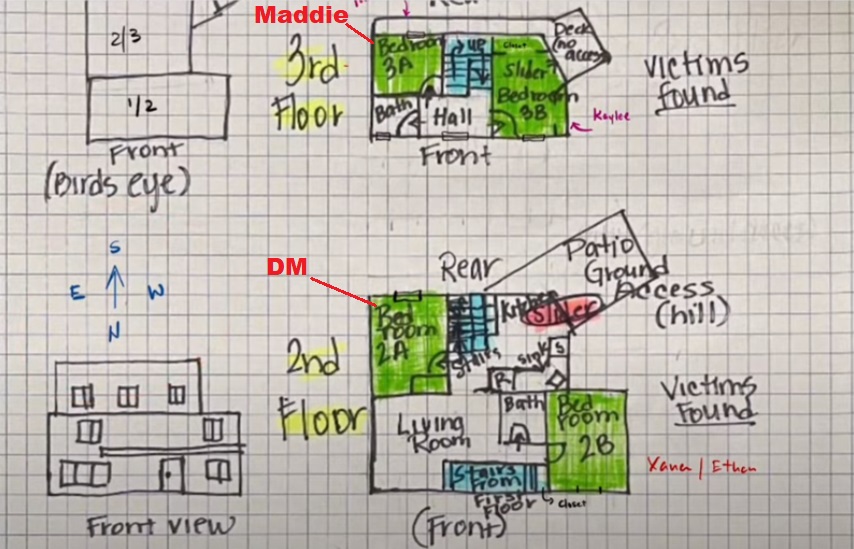 Maddie
2/3
1/2
Front
(Birds eye)
3rd
Floor
Bedroom
3A
up
closet
Deck
(no
access)
Slider
Bedroom
3B
Bath
Hall
Front
Kaylee
Victims
found
S
E W
N
DM
Rear
Patio
Ground
Access
(hill)
2nd
Floor
Bed
room
2A
Stairs
Kitchen
Slider
Sink
S
R
Bath
Living
Room
Bed
room
2B
Stairs
From
First
Floor
closet
(Front)
Victims
Found
Xana / Ethan
Front view